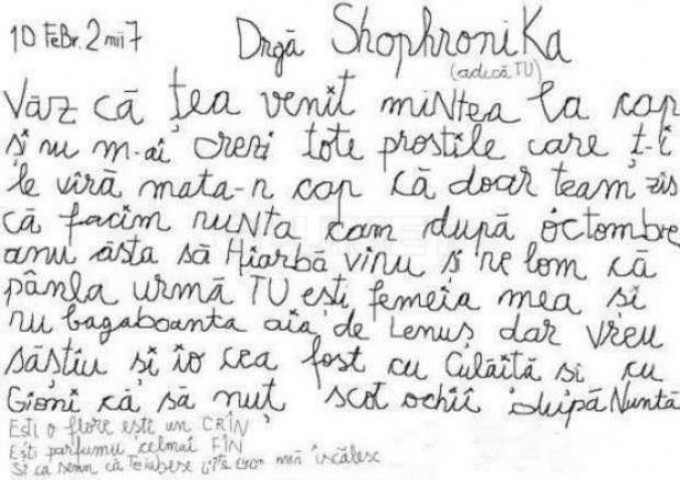 10 FeBr. 2 mii 7 Drgă ShophroniKa
(adică TU)
Văz că ţea venit miNtea la cap
şi nu m-ai crezi tote prostile care ţ-i
le viră mata-n cap că doar team zis
că facim nuNta cam după octombre
anu ăsta să Hiarbă vinu şi ne lom că
pânla urmă TU eşti femeia mea si
nu bagaboanta aia de Lenuş dar vreu
săştiu si io cea fost cu Culăită si cu
Gioni că să nuţ scot ochii după Nuntă
Eşti o flore eşti un CRÎN
Eşti parfumu celmai FÎN
Si ca semn că Teiubesc mă iscălesc